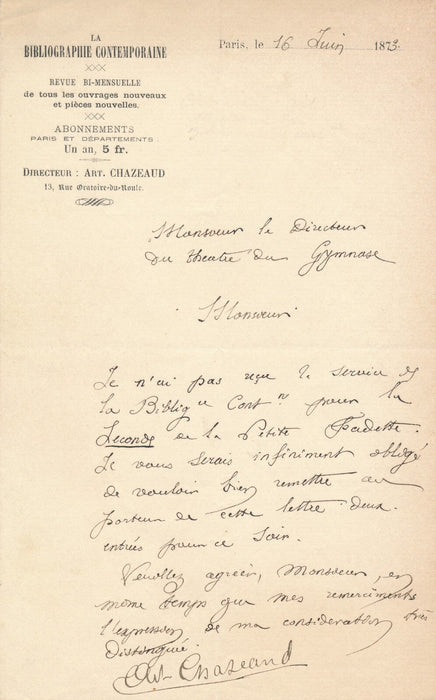 LA
BIBLIOGRAPHIE CONTEMPORAINE
XXX
REVUE BI-MENSUELLE
de tous les ouvrages nouveaux
et pièces nouvelles.
XXX
ABONNEMENTS
PARIS ET DÉPARTEMENTS
Un an, 5 fr.
DIRECTEUR : ART. CHAZEAUD
13, Rue Oratoire-du-Roule.
Paris, le 16 Juin 1873.
Monsieur le Directeur
du théatre du Gymnase
Monsieur
Je n'ai pas reçu le service de
la Bibliog ie Cont ne pour la
Seconde de la Petite Fadette.
Je vous serais infiniment obligé
de vouloir bien remettre au
porteur de cette lettre deux
entrées pour ce soir.
Veuillez agréer, Monsieur, en
même temps que mes remerciments
l'expression de ma considération très
distinguée.
Art. Chazeaud